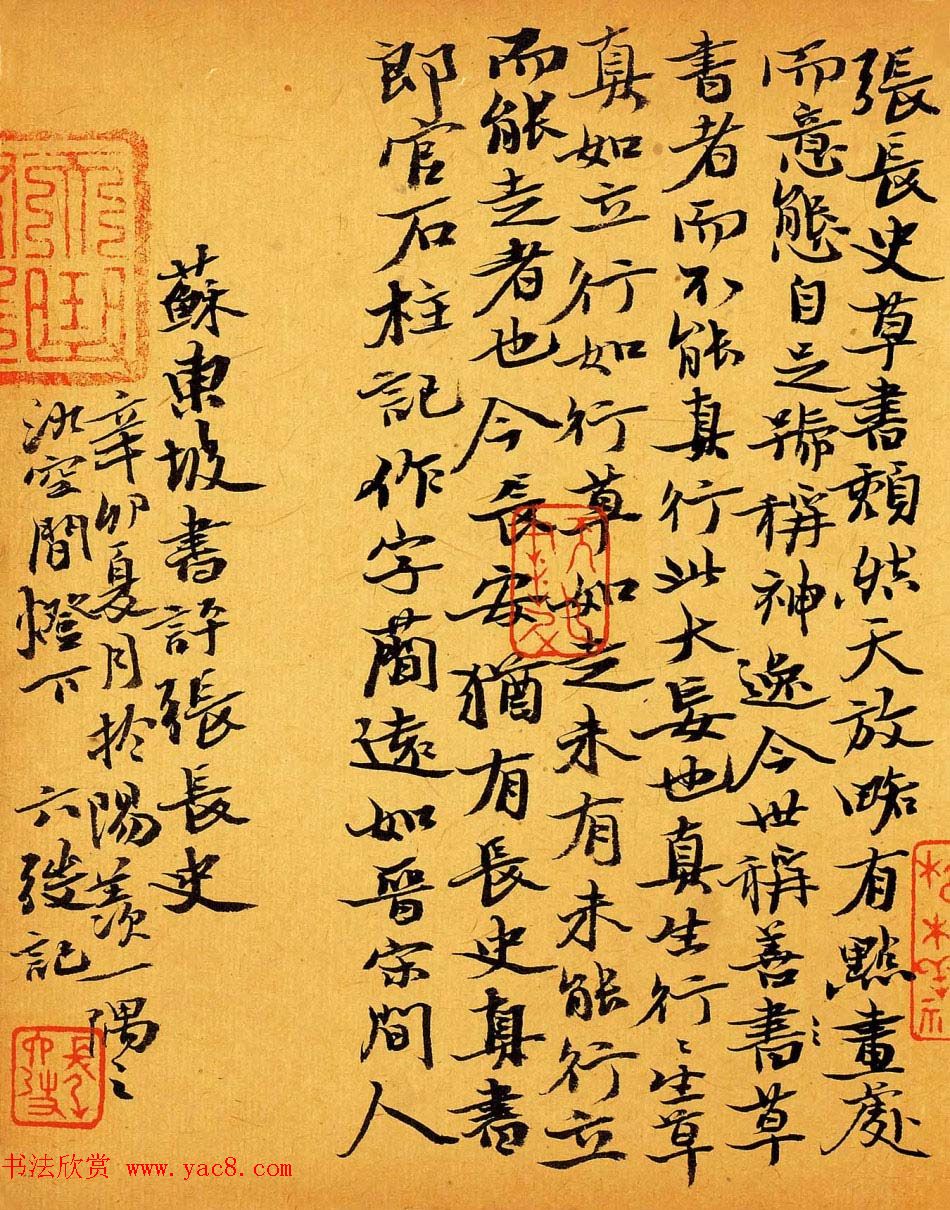 張長史草書頹然天放略有點畫處
而意態自足號稱神逸今世稱善書草
書者而不能真行此大妄也真生行〻生草
真如立行如行草如走未有未能行立
而能走者也今長安猶有長史真書
郎官石柱記作字蕑遠如晉宋間人
蘇東坡書評張長史
辛卯夏月於陽羨一隅之
冰空間燈下 六獎記
书法欣赏 www.yac8.com